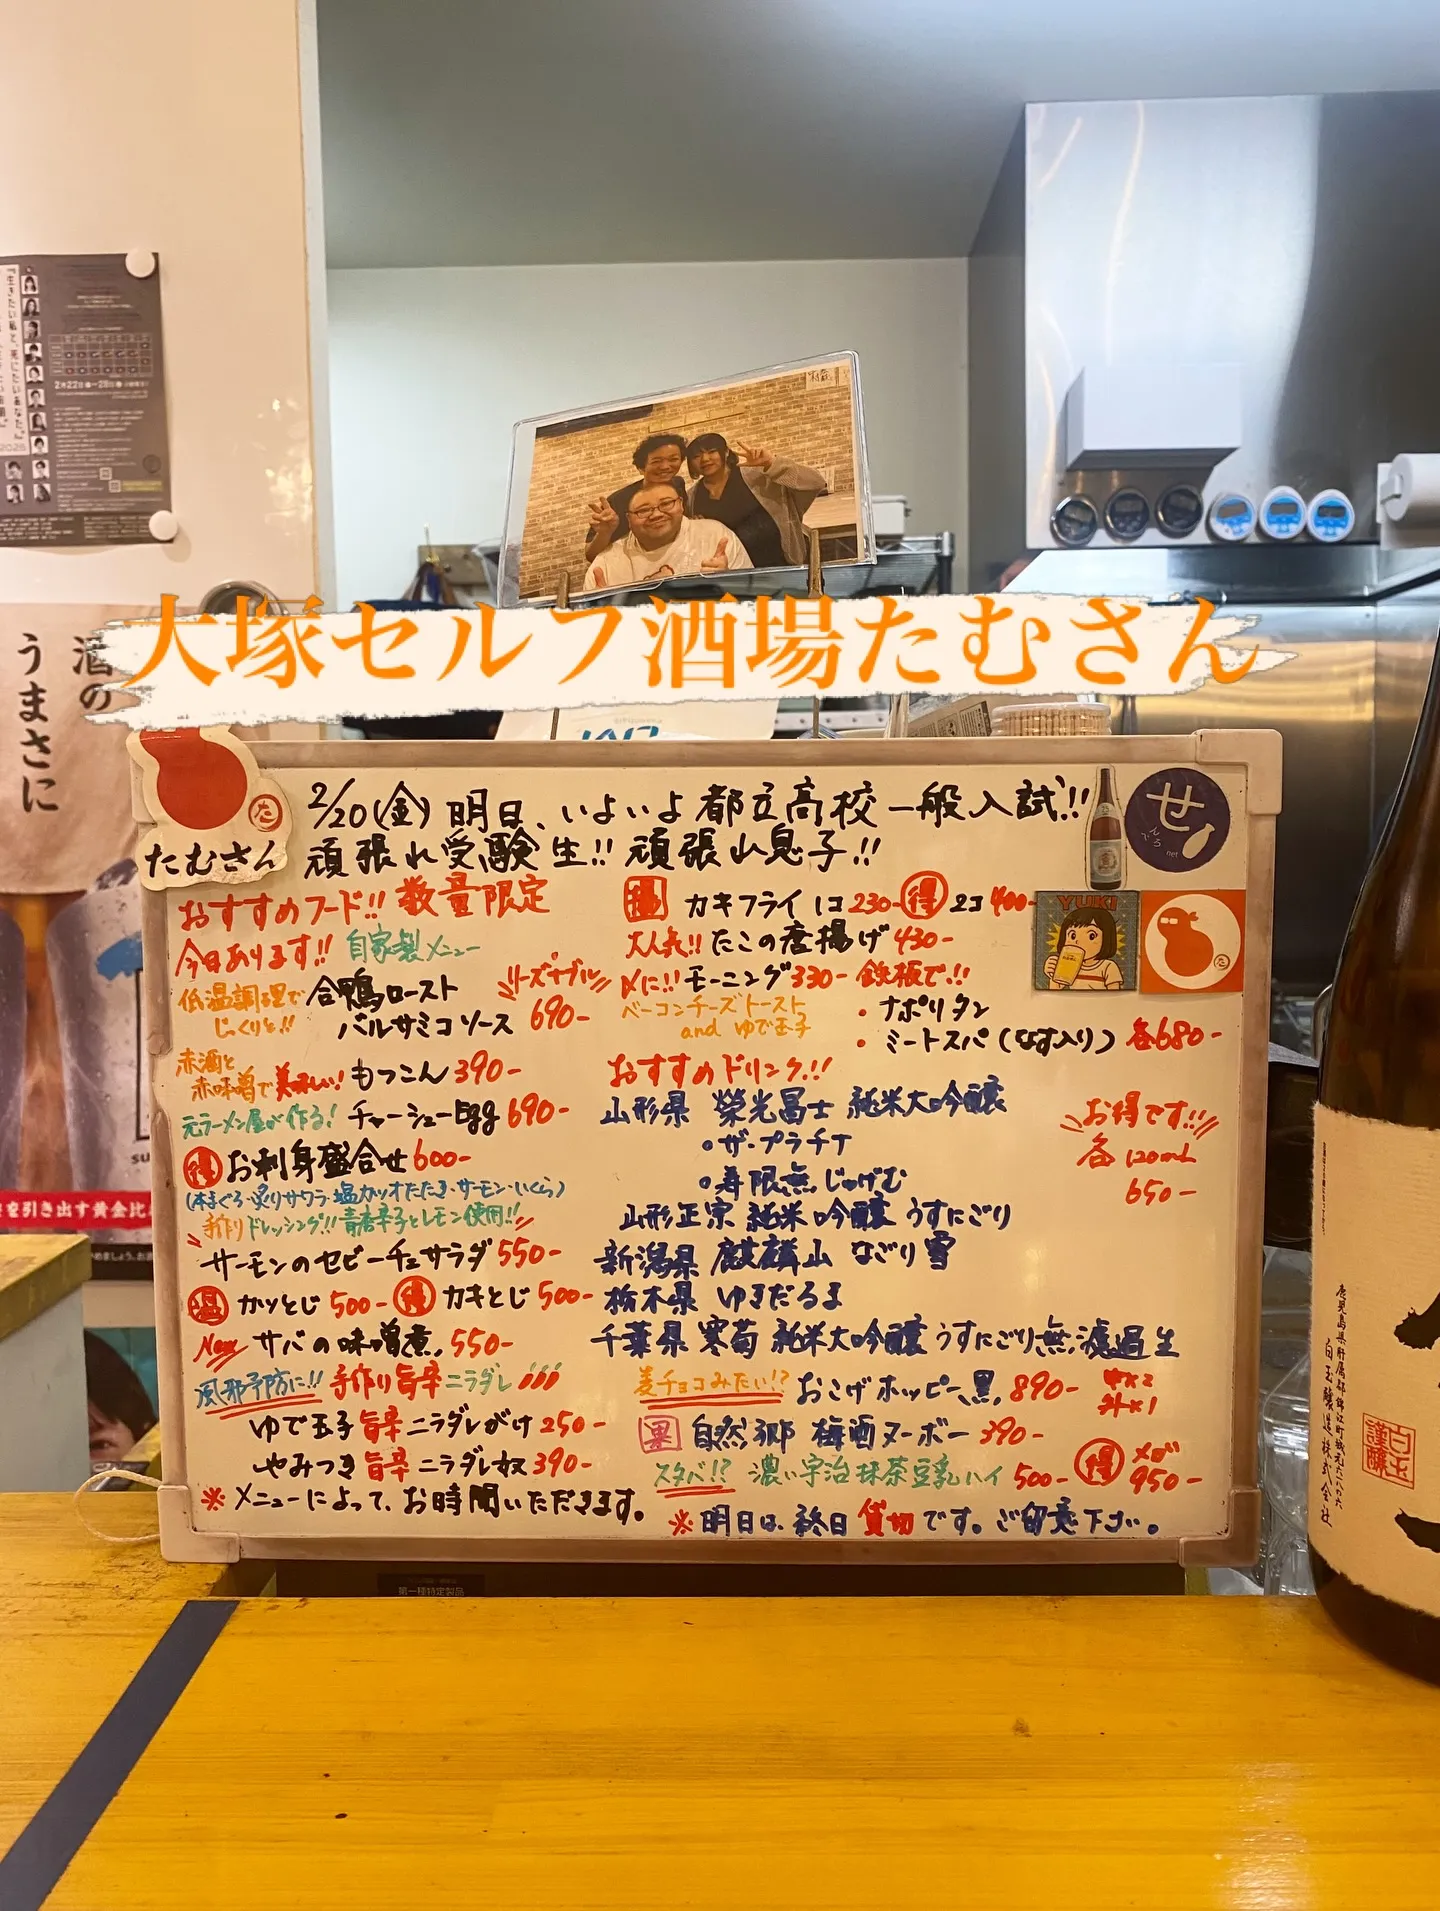 大塚セルフ酒場たむさん
2月22日
28日
2026
酒の
うまさに
を引き出す黄金比
たむさん
2/20(金) 明日、いよいよ都立高校一般入試!!
頑張れ受験生!! 頑張れ息子!!
せ
net
YUKI
おすすめフード!! 数量限定
今日あります!! 自家製メニュー
低温調理で
じっくりと!!
合鴨ロースト
バルサミコソース
リーズナブル
690-
赤酒と
赤味噌で美味しい! もつこん 390-
元ラーメン屋が作る! チャーシューEgg 690-
得 お刺身盛合せ 600-
(本まぐろ・炙りサワラ・塩カツオたたき・サーモン・いくら)
手作りドレッシング!! 青唐辛子とレモン使用!!
サーモンのセビーチェサラダ 550-
温 カツとじ 500- 得 カキとじ 500-
New サバの味噌煮 550-
風邪予防に!! 手作り旨辛ニラダレ
ゆで玉子旨辛ニラダレがけ 250-
やみつき旨辛ニラダレ奴 390-
※メニューによって、お時間いただきます。
カキフライ 1コ 230- 得 2コ 400-
大人気!! たこの唐揚げ 430-
〆に!! モーニング 330-
ベーコンチーズトースト
and ゆで玉子
鉄板で!!
・ナポリタン
・ミートスパ(なす入り) 各680-
おすすめドリンク!!
山形県 榮光冨士 純米大吟醸
・ザ・プラチナ
・寿限無じゅげむ
山形正宗 純米吟醸 うすにごり
新潟県 麒麟山 なごり雪
栃木県 ゆきだるま
千葉県 寒菊 純米大吟醸 うすにごり無濾過生
お得です!!
各 120mL
650-
麦チョコみたい!? おこげホッピー黒 890- 中×2
外×1
自然郷 梅酒ヌーボー 390-
スタバ!? 濃い宇治抹茶豆乳ハイ 500- 得 メガ
950-
※明日は、終日貸切です。ご留意下さい。
第一種特定製品
白玉醸造株式会社